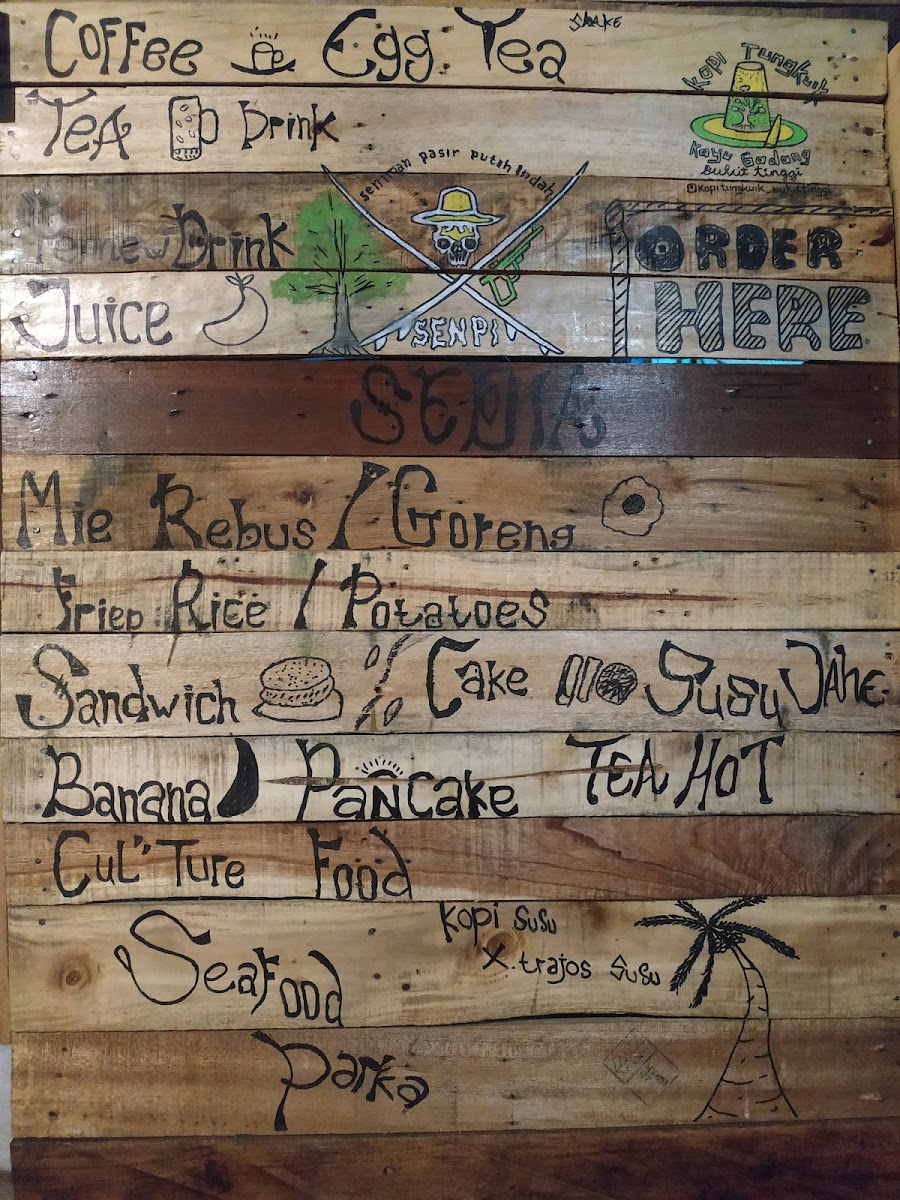 Coffee Egg Tea SHAKE
Kopi Tungkuik
TeA Drink
Kayu Gadang
Bukit tinggi
@kopitungkuik_bukittinggi
seniman pasir putih Indah
Drink
ORDER
Juice
SENPI
HERE
SEDIA
Mie Rebus / Goreng
Fried Rice / Potatoes
Sandwich Cake Susu JAhe
Banana PaNcake TEA HOT
CuL" Ture Food
Kopi susu
SeaFood
X.trajos susu
Parka